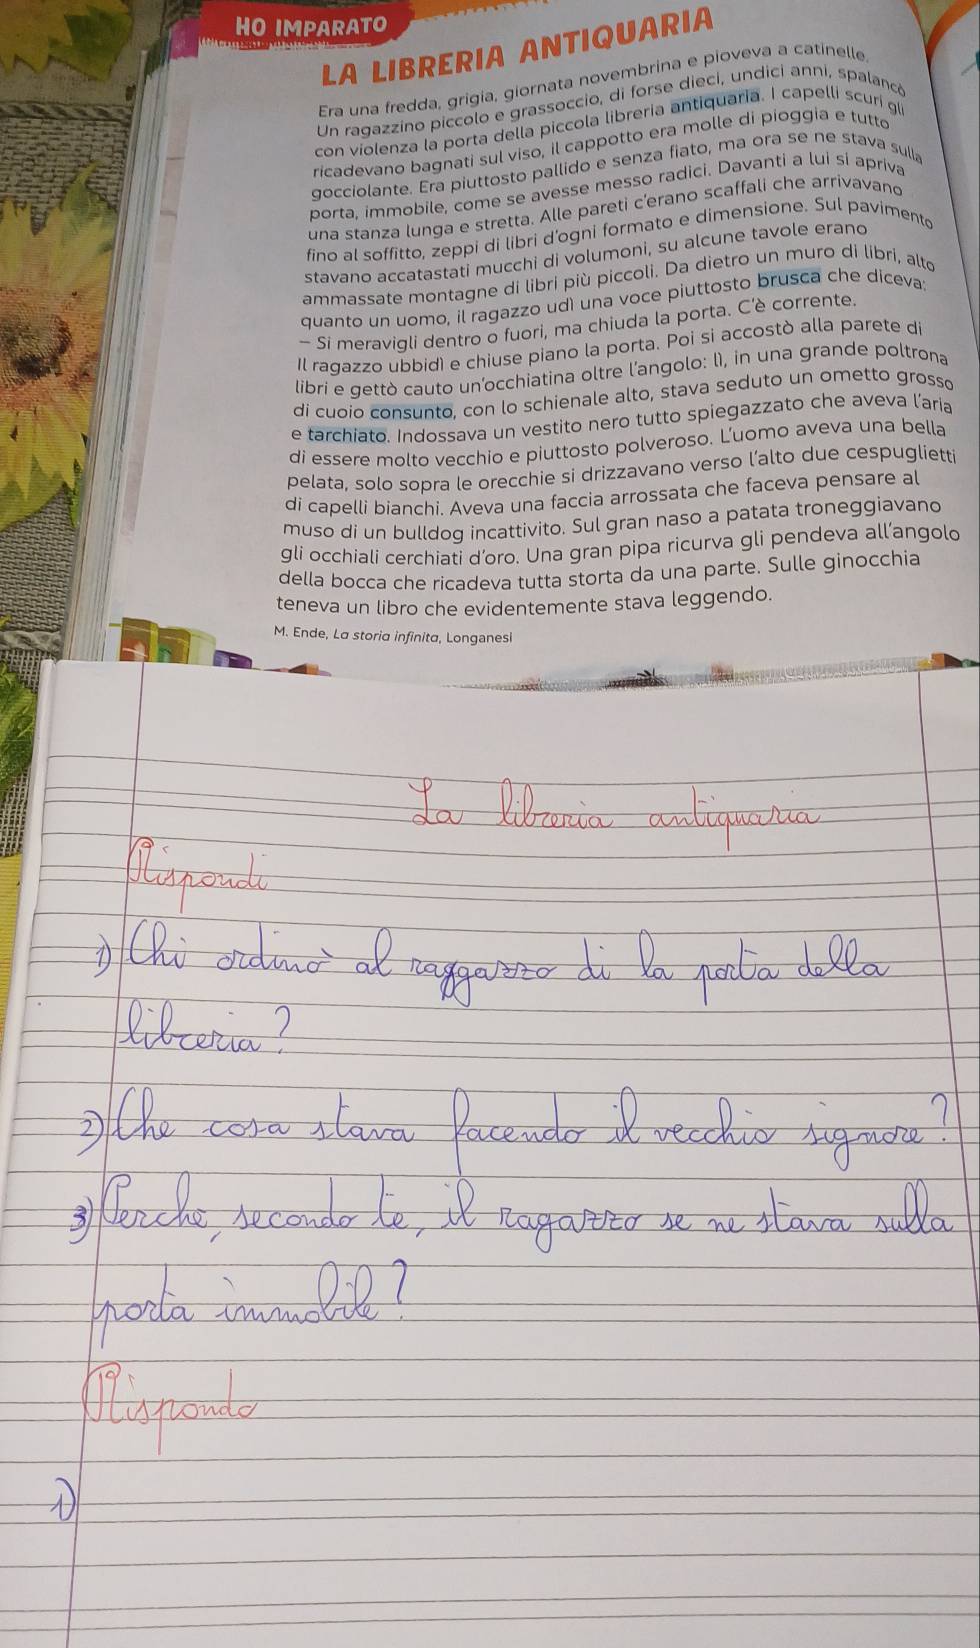 HO IMPARATO
LA LIBRERIA ANTIQUARIA
Era una fredda, grigia, giornata novembrina e pioveva a catinelle.
Un ragazzino piccolo e grassoccio, di forse dieci, undici anni, spalancò
con violenza la porta della piccola libreria antiquaria. I capelli scuri gli
ricadevano bagnati sul viso, il cappotto era molle di pioggia e tutto
gocciolante. Era piuttosto pallido e senza fiato, ma ora se ne stava sulla
porta, immobile, come se avesse messo radici. Davanti a lui si apriva
una stanza lunga e stretta. Alle pareti c'erano scaffali che arrivavano
fino al soffitto, zeppi di libri d'ogni formato e dimensione. Sul pavimento
stavano accatastati mucchi di volumoni, su alcune tavole erano
ammassate montagne di libri più piccoli. Da dietro un muro di libri, alto
quanto un uomo, il ragazzo udì una voce piuttosto brusca che diceva:
– Si meravigli dentro o fuori, ma chiuda la porta. C'è corrente.
Il ragazzo ubbidì e chiuse piano la porta. Poi si accostò alla parete di
libri e gettò cauto un'occhiatina oltre l'angolo: lì, in una grande poltrona
di cuoio consunto, con lo schienale alto, stava seduto un ometto grosso
e tarchiato. Indossava un vestito nero tutto spiegazzato che aveva l'aria
di essere molto vecchio e piuttosto polveroso. L'uomo aveva una bella
pelata, solo sopra le orecchie si drizzavano verso l'alto due cespuglietti
di capelli bianchi. Aveva una faccia arrossata che faceva pensare al
muso di un bulldog incattivito. Sul gran naso a patata troneggiavano
gli occhiali cerchiati d'oro. Una gran pipa ricurva gli pendeva all'angolo
della bocca che ricadeva tutta storta da una parte. Sulle ginocchia
teneva un libro che evidentemente stava leggendo.
M. Ende, La storia infinita, Longanesi
La libreria antiquaria
Rispondi
1) Chi ordinò al raggazzo di la porta della
libreria?
2) Che cosa stava facendo il vecchio signore?
3) Perche, secondo te, il ragazzo se ne stava sulla
porta immobile?
Rispondo
1)